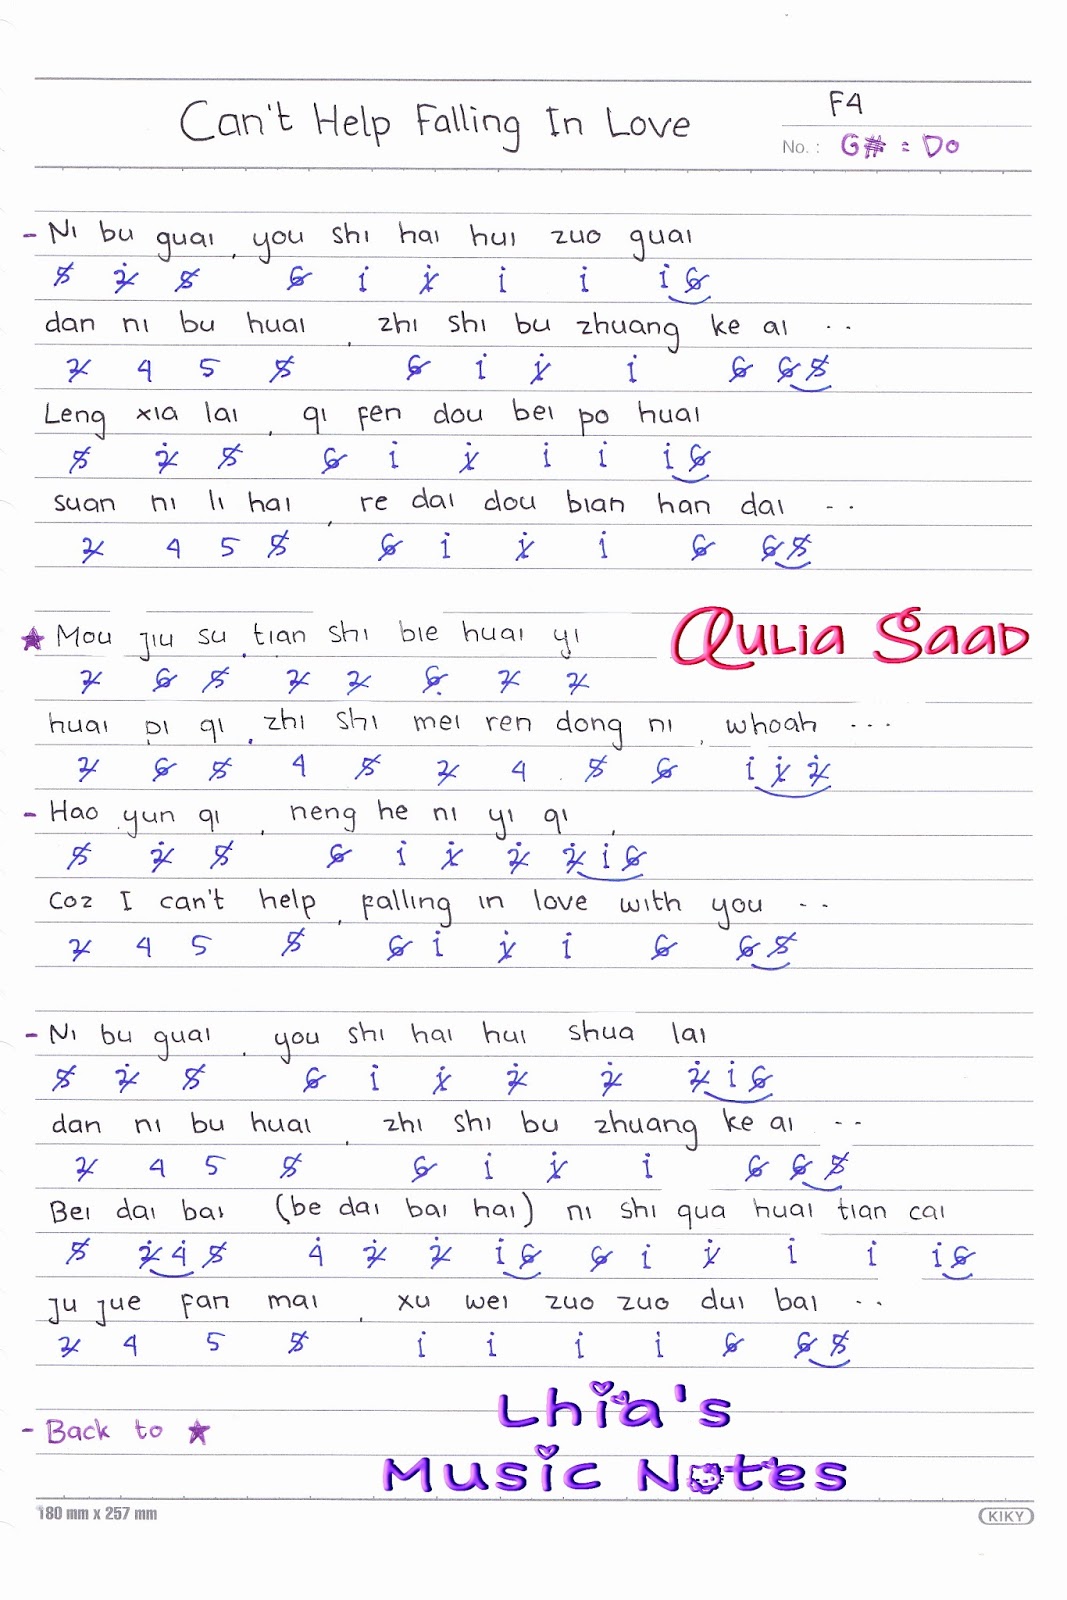 Can't Help Falling In Love
F4
No. : G# = Do
- Ni bu guai, you shi hai hui zuo guai
5 2 5 6 1 1 1 1 1 6
dan ni bu huai, zhi shi bu zhuang ke ai ..
2 4 5 5 6 1 1 1 6 6 5
Leng xia lai, qi fen dou bei po huai
5 2 5 6 1 1 1 1 1 6
suan ni li hai, re dai dou bian han dai ..
2 4 5 5 6 1 1 1 6 6 5
★ Mou jiu su, tian shi bie huai yi
2 6 5 2 2 6 2 2
Qulia Saad
huai pi qi, zhi shi mei ren dong ni, whoah ...
2 6 5 4 5 2 4 5 6 1 1 2
- Hao yun qi, neng he ni yi qi,
5 2 5 6 1 1 2 2 1 6
coz I can't help, falling in love with you ..
2 4 5 5 6 1 1 1 6 6 5
- Ni bu guai, you shi hai hui shua lai
5 2 5 6 1 1 2 2 2 1 6
dan ni bu huai, zhi shi bu zhuang ke ai ..
2 4 5 5 6 1 1 1 6 6 5
Bei dai bai (be dai bai hai) ni shi qua huai tian cai
5 2 4 5 4 2 2 1 6 6 1 1 1 1 1 6
ju jue fan mai, xu wei zuo zuo dui bai ..
2 4 5 5 1 1 1 1 6 6 5
- Back to ★
Lhia's
Music Notes
180 mm x 257 mm
KIKY